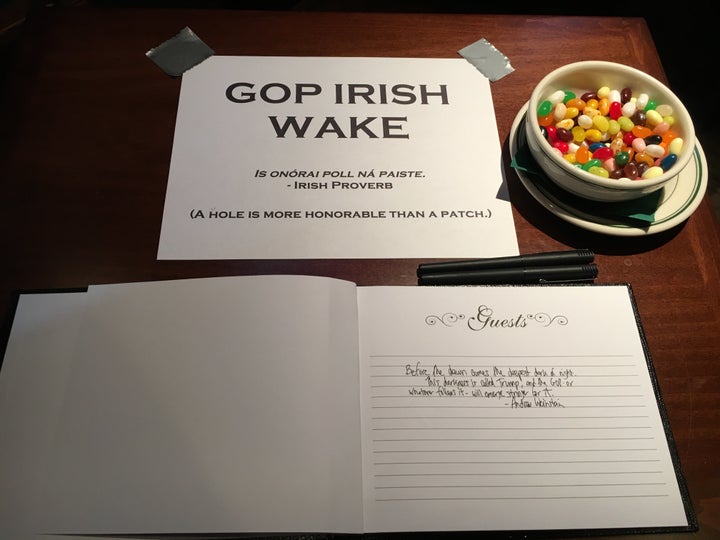 GOP IRISH
WAKE
IS ONÓRAI POLL NÁ PAISTE.
- IRISH PROVERB
(A HOLE IS MORE HONORABLE THAN A PATCH.)
Guests
Before the dawn comes the deepest dark of night.
This darkness is called Trump, and the GOP - or
whatever follows it - will emerge stronger for it.
- Andrew Weinstein